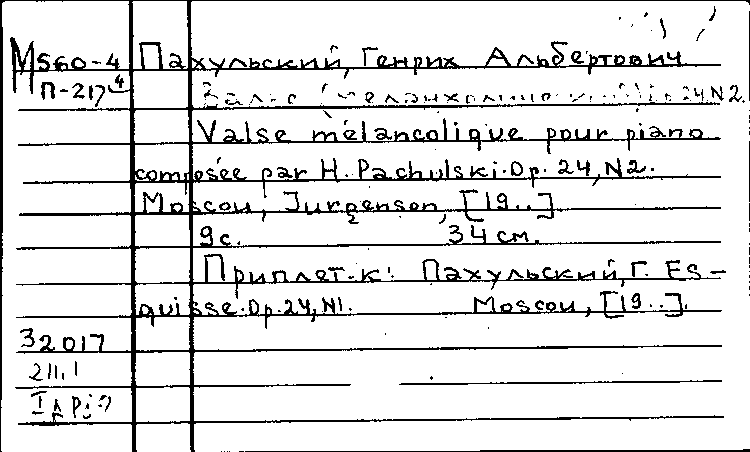 М560-4 Пахульский, Генрих Альбертович
П-217⁴ Вальс (меланхолический) 24, N2.
Valse mélancolique pour piano
composée par H. Pachulski. Op. 24, N2.
Moscou, Jurgenson, [19..]
9с. 34 см.
Приплет. к: Пахульский, Г. Es-
quisse. Op. 24, N1. Moscou, [19..].
32017
211.1